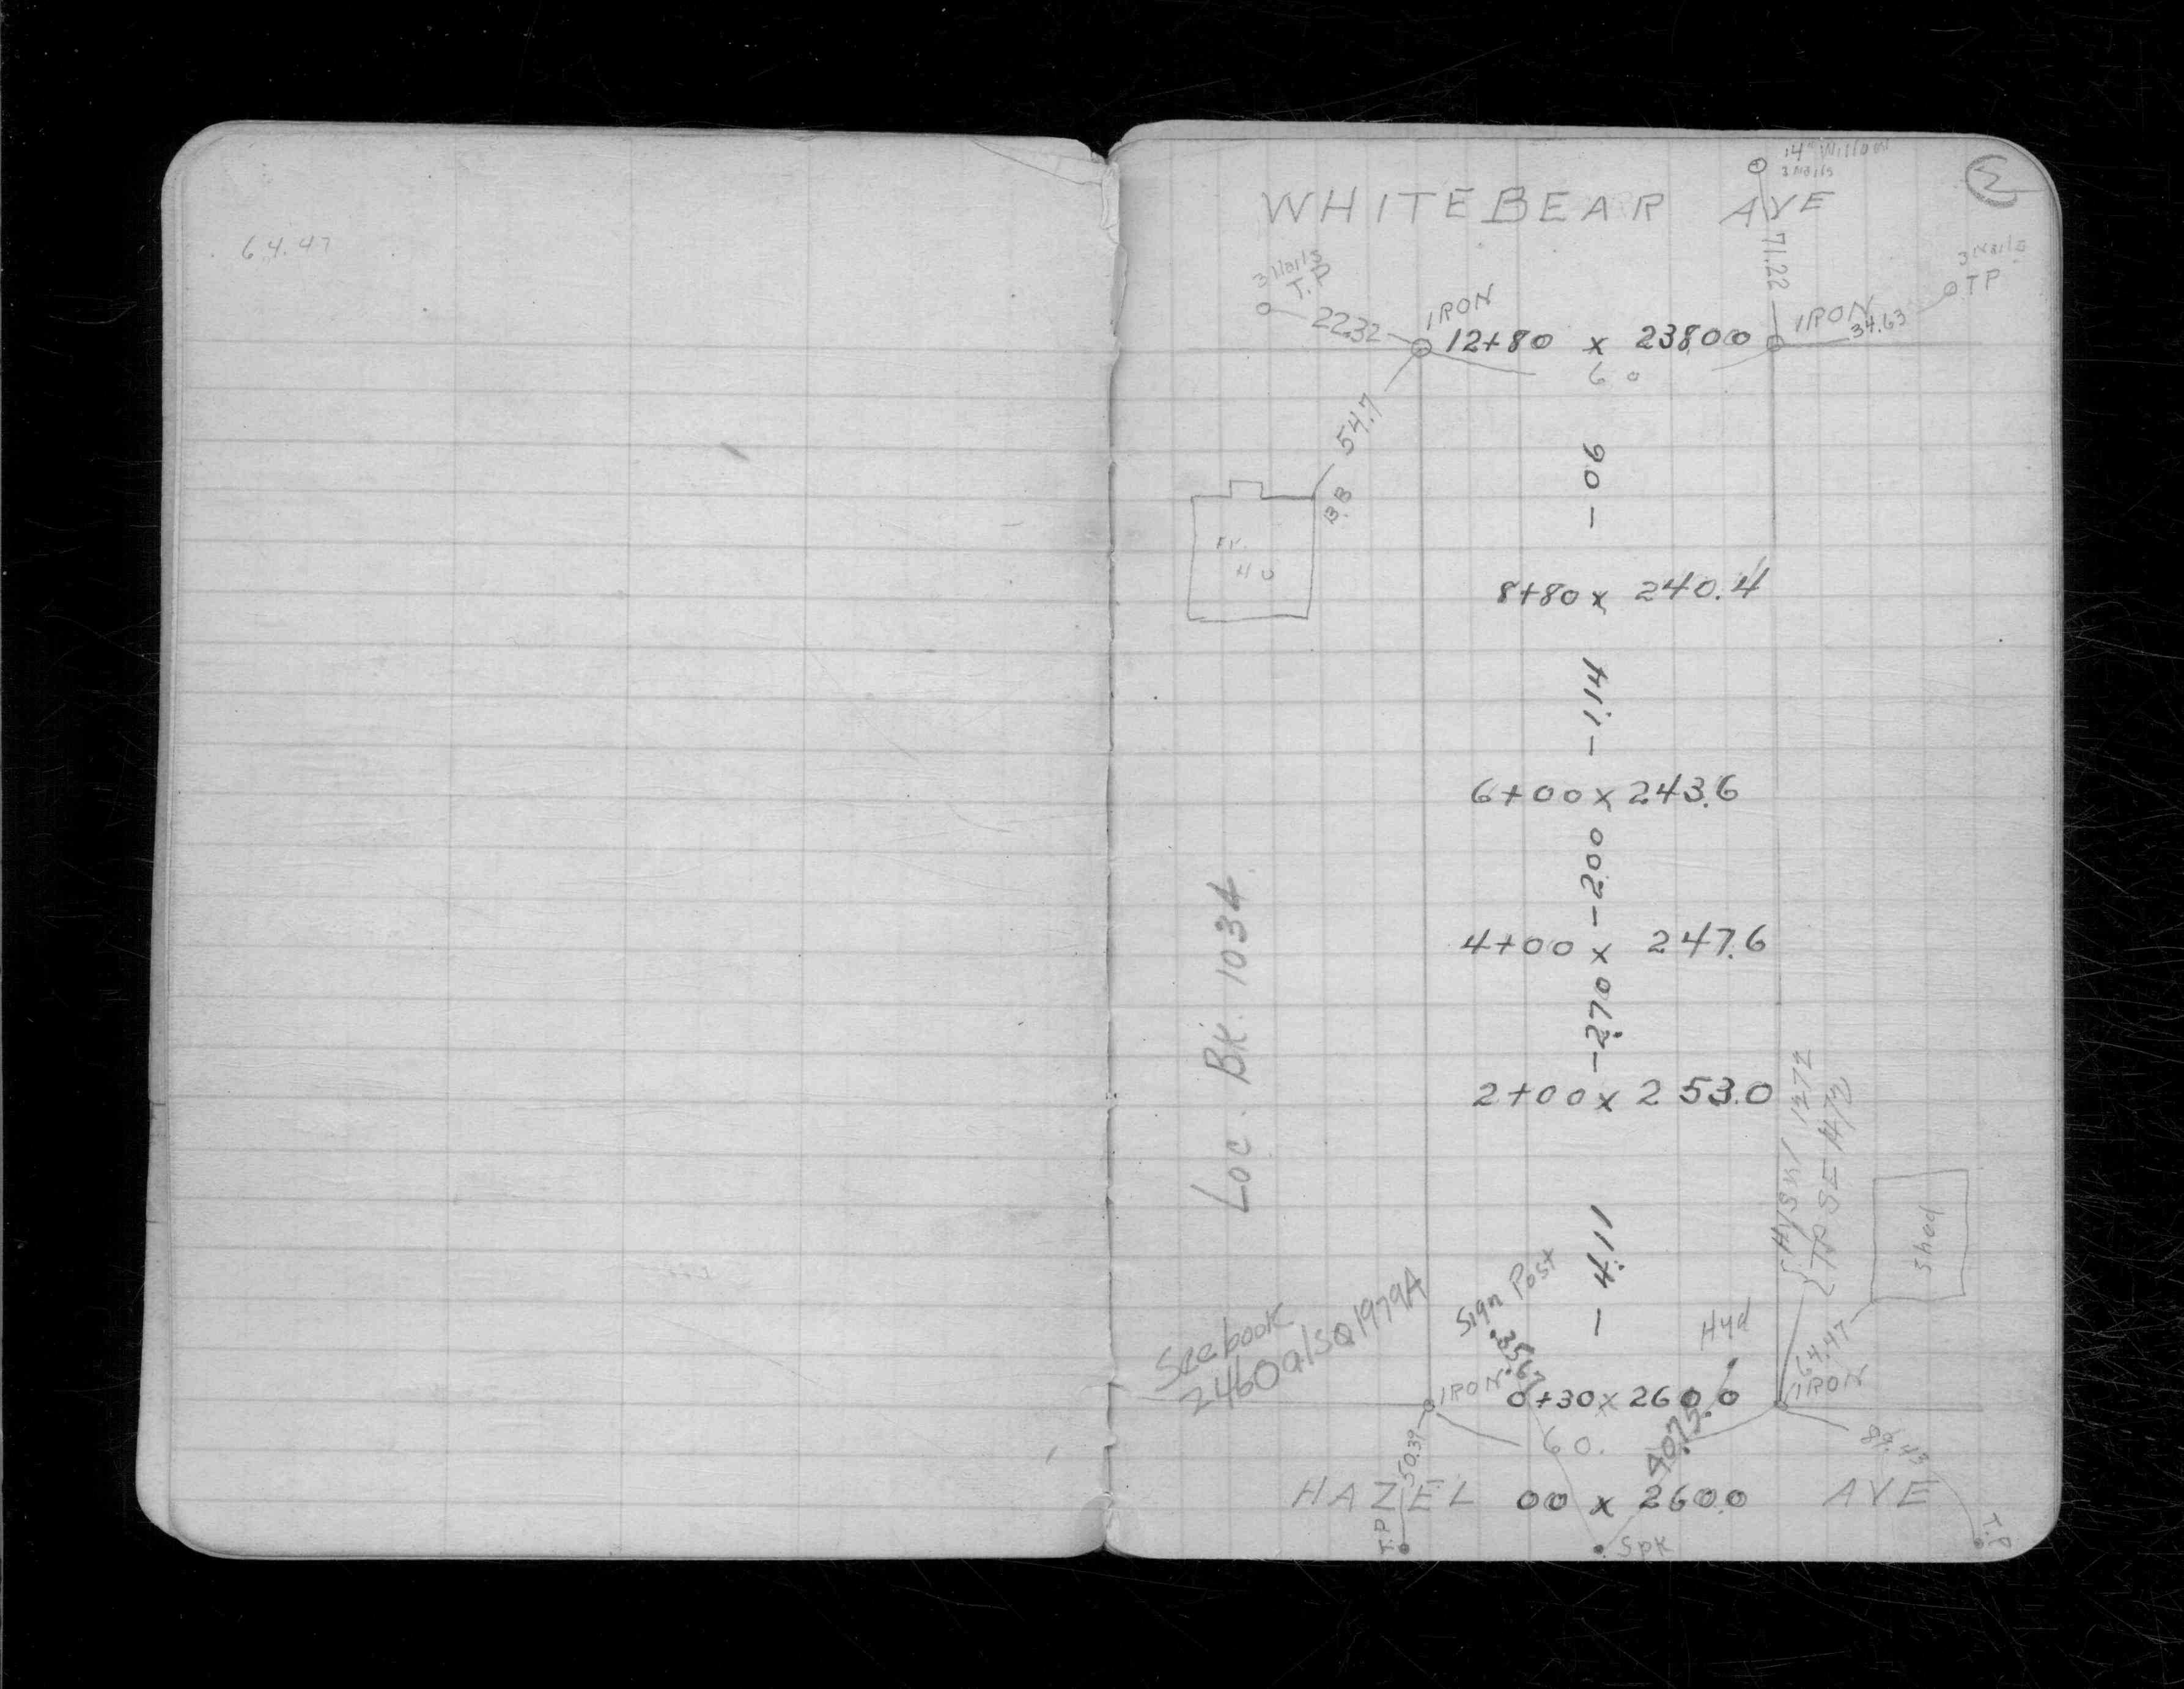 64.47
14" Willow
3 Nails
WHITEBEAR AVE
3 Nails
T.P
71.22
3 Nails
TP
IRON
22.32
12+80 x 238.00
IRON
34.63
60
54.7
B.B
- .90
Fr.
Ho
8+80 x 240.4
- 1.14
6+00 x 243.6
- 2.00
Loc. BK. 1034
4+00 x 247.6
- 2.70
2+00 x 253.0
TP SE
Shed
- 4.11
Sign Post
See book
2460 also 1979A
Hyd
35.67
64.47
IRON
0+30 x 260.0
IRON
50.39
60.
40.75
89.43
HAZEL 00 x 260.0 AVE
T.P
Spk
T.P